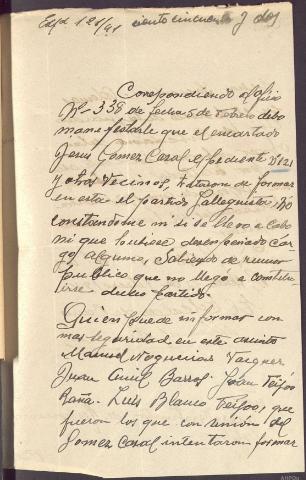 Expd 121/41 ciento cincuenta y dos
Corespondiendo al ofisio
Nº 338 de fecha 5 de Febrero debo
manifestarle que el encartado
Jesus Gomez Casal expediente 121
y otros vecinos, trataron de formar
en esta el partido Galleguista, no
constandome ni si se llevo a cabo
ni que tubiese desenpeñado car
go alguno, sabiendo de rumor
publico que no llegó a constitu-
irse dicho partido.
Quien puede informar con
mas seguridad en este asunto
Manuel Nogueiras
Juan Barros. Juan Teijóo
Raña. Luis Blanco Teijoo, que
fueron los que con unión del
Gomez Casal intentaron formar